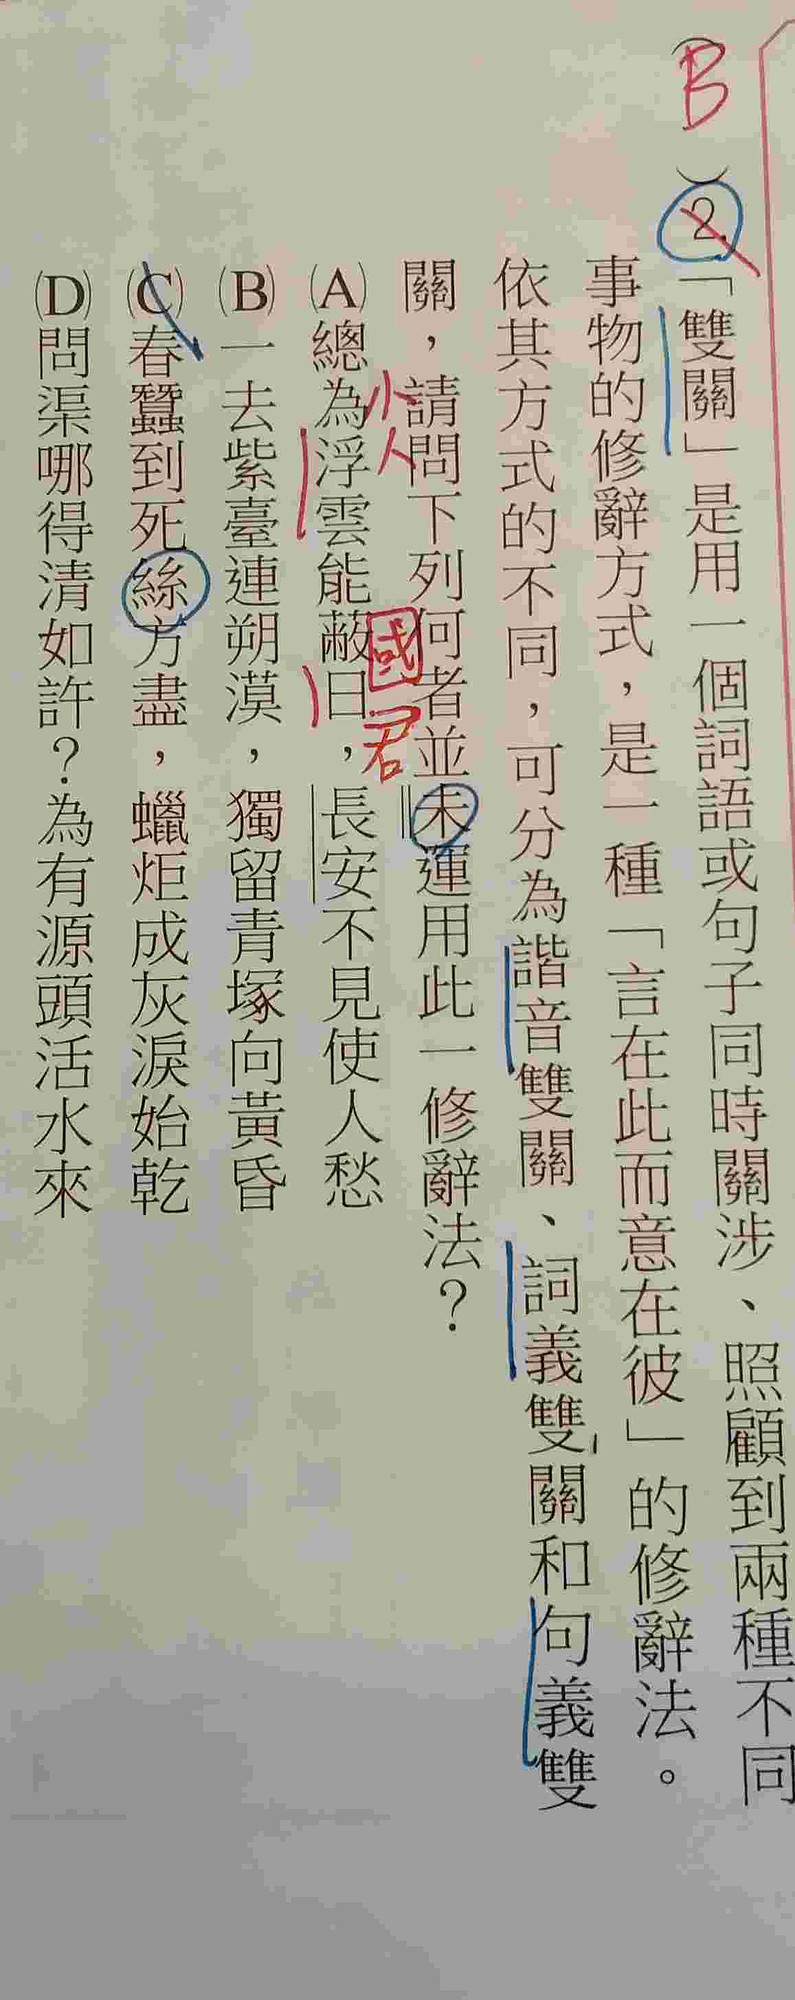 B
）2.「雙關」是用一個詞語或句子同時關涉、照顧到兩種不同
事物的修辭方式，是一種「言在此而意在彼」的修辭法。
依其方式的不同，可分為諧音雙關、詞義雙關和句義雙
關，請問下列何者並未運用此一修辭法？
小人
國君
(A)總為浮雲能蔽日，長安不見使人愁
(B)一去紫臺連朔漠，獨留青塚向黃昏
(C)春蠶到死絲方盡，蠟炬成灰淚始乾
(D)問渠哪得清如許？為有源頭活水來